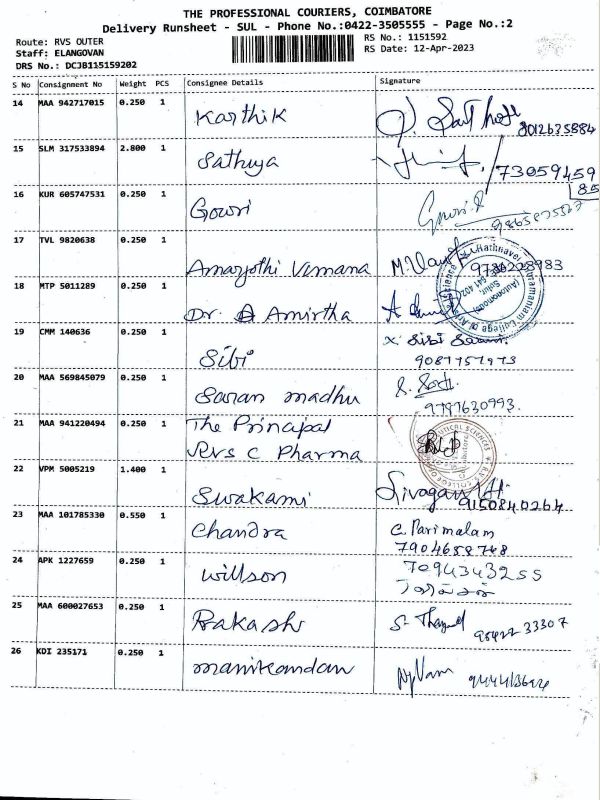 THE PROFESSIONAL COURIERS, COIMBATORE
Delivery Runsheet - SUL - Phone No.:0422-3505555 - Page No.:2
Route: RVS OUTER
Staff: ELANGOVAN
DRS No.: DCJB115159202
RS No.: 1151592
RS Date: 12-Apr-2023
S No Consignment No Weight PCS Consignee Details Signature
14 MAA 942717015 0.250 1 Karthik
15 SLM 317533894 2.800 1 Sathiya
73059459
85
16 KUR 605747531 0.250 1 Gowri Gowri.R
17 TVL 9820638 0.250 1 Amarjothi Vimana
18 MTP 5011289 0.250 1 Dr. Amirtha
19 CMM 140636 0.250 1 Sibi
20 MAA 569845079 0.250 1 Saran madhu
9797630993.
21 MAA 941220494 0.250 1 The Principal
RVS C Pharma
22 VPM 5005219 1.400 1 Swakami
9150840264
23 MAA 101785330 0.550 1 Chandra C. Parimalam
7904658748
24 APK 1227659 0.250 1 Willson 7094343255
25 MAA 600027653 0.250 1 Prakash
26 KDI 235171 0.250 1 manikandan